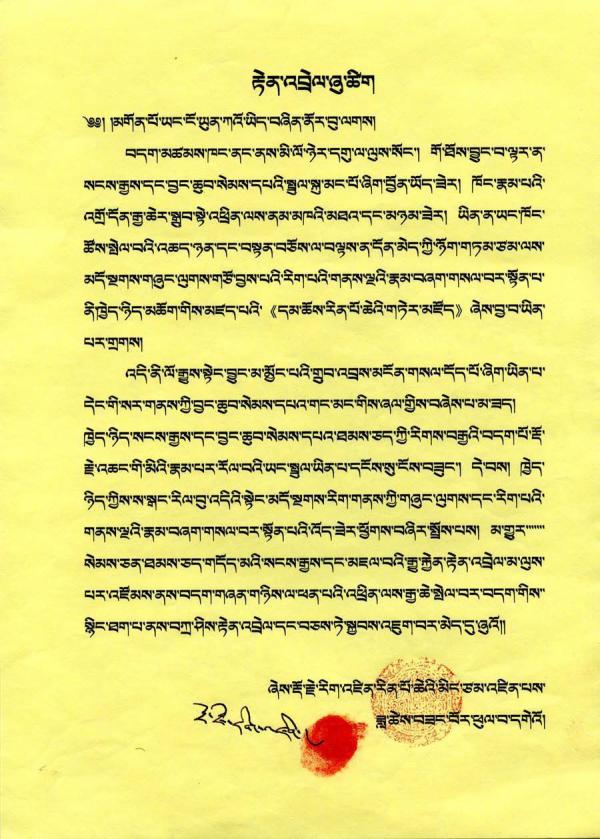 རྟེན་འབྲེལ་ཞུ་ཚིག
༄༅། །མགོན་པོ་ཡང་ངོ་ཡུན་ཀའོ་ཡིད་བཞིན་ནོར་བུ་ལགས།
བདག་མཚམས་ཁང་ནང་ནས་མི་ལོ་ཉེར་དགུ་ལ་ལུས་སོང་། གོ་ཐོས་བྱུང་བ་ལྟར་ན་
སངས་རྒྱས་དང་བྱང་ཆུབ་སེམས་དཔའི་སྤྲུལ་སྐུ་མང་པོ་ཞིག་བྱོན་ཡོད་ཟེར། ཁོང་རྣམ་པའི་
འགྲོ་དོན་རྒྱ་ཆེར་སྒྲུབ་སྟེ་འཕྲིན་ལས་ནམ་མཁའི་མཐའ་དང་མཉམ་ཟེར། ཡིན་ན་ཡང་ཁོང་
ཚོས་སྤེལ་བའི་འཆད་ཉན་དང་བསྟན་བཅོས་ལ་བལྟས་ན་དོན་མེད་ཀྱི་ཧོག་གཏམ་ཙམ་ལས་
མདོ་སྔགས་གཞུང་ལུགས་གཙོ་བྱས་པའི་རིག་པའི་གནས་ལྔའི་རྣམ་བཞག་གསལ་བར་སྟོན་པ་
ནི་ཁྱེད་ཉིད་མཆོག་གིས་མཛད་པའི་《དམ་ཆོས་རིན་པོ་ཆེའི་གཏེར་མཛོད》ཞེས་བྱ་བ་ཡིན་
པར་གྲགས།
འདི་ནི་ལོ་རྒྱུས་སྟེང་བྱུང་མ་མྱོང་པའི་གྲུབ་འབྲས་མངོན་གསལ་དོད་པོ་ཞིག་ཡིན་པ་
དེང་གི་སར་གནས་ཀྱི་བྱང་ཆུབ་སེམས་དཔའ་གང་མང་གིས་ཞལ་གྱིས་བཞེས་པ་མ་ཟད།
ཁྱེད་ཉིད་སངས་རྒྱས་དང་བྱང་ཆུབ་སེམས་དཔའ་ཐམས་ཅད་ཀྱི་རིགས་བརྒྱའི་བདག་པོ་རྡོ་
རྗེ་འཆང་གི་མིའི་རྣམ་པར་རོལ་བའི་ཡང་སྤྲུལ་ཡིན་པ་དངོས་སུ་ངོས་བཟུང་། དེ་བས། ཁྱེད་
ཉིད་ཀྱིས་ས་སྒང་རིལ་བུ་འདིའི་སྟེང་མདོ་སྔགས་རིག་གནས་ཀྱི་གཞུང་ལུགས་དང་རིག་པའི་
གནས་ལྔའི་རྣམ་བཞག་གསལ་བར་སྟོན་པའི་འོད་ཟེར་ཕྱོགས་བཞིར་སྤྲོས་པས། མ་གྱུར་
སེམས་ཅན་ཐམས་ཅད་གདོད་མའི་སངས་རྒྱས་དང་མཇལ་བའི་རྒྱུ་རྐྱེན་རྟེན་འབྲེལ་མ་ལུས་
པར་འཛོམས་ནས་བདག་གཞན་གཉིས་ལ་ཕན་པའི་འཕྲིན་ལས་རྒྱ་ཆེ་སྤེལ་བར་བདག་གིས་
སྙིང་ཐག་པ་ནས་བཀྲ་ཤིས་རྟེན་འབྲེལ་དང་བཅས་ཏེ་སྐྱབས་འཇུག་བར་མེད་དུ་ཞུའོ།།
ཞེས་རྡོ་རྗེ་རིག་འཛིན་རིན་པོ་ཆེའི་མིང་ཙམ་འཛིན་པས་
ཟླ་ཚེས་བཟང་པོར་ཕུལ་བ་དགེའོ།